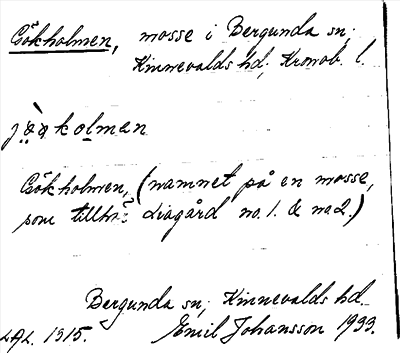 Gökholmen, mosse i Bergunda sn;
Kinnevalds hd; Kronob. l.
Gökholmen, (namnet på en mosse,
som tillhr. Liagård no. 1. & no 2.)
Bergunda sn; Kinnevalds hd.
L.A.L. 1315. Emil Johansson 1933.